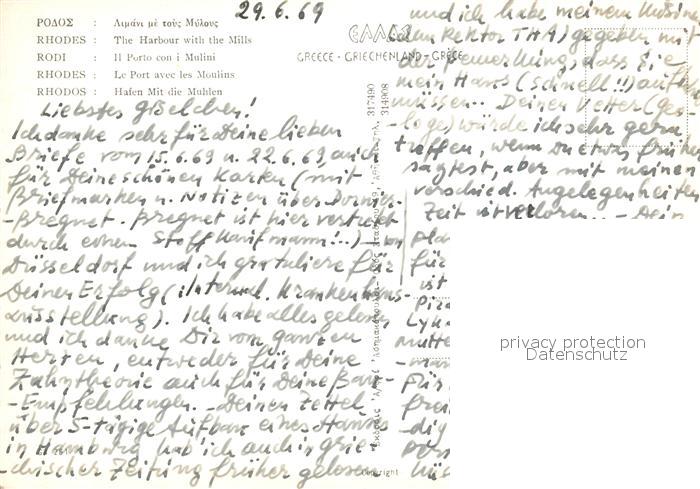 29.6.69
ΡΟΔΟΣ : Λιμάνι μὲ τοὺς Μύλους
RHODES : The Harbour with the Mills
RODI : Il Porto con i Mulini
RHODES : Le Port avec les Moulins
RHODOS : Hafen Mit die Muhlen
ΕΛΛΑΣ
GREECE - GRIECHENLAND - GRÈCE
317490
314908
Liebstes Giselchen!
Ich danke sehr für Deine lieben
Briefe vom 15.6.69 u. 22.6.69, auch
für Deine schönen Karten (mit
Briefmarken u. Notizen über Dornier-
-Breguet. Breguet ist hier vertretet
durch einen Stoff Kaufmann!..) - von
Düsseldorf und ich gratuliere für
Deinen Erfolg (internat. Krankenhaus-
ausstellung). Ich habe alles gelesen
und ich danke Dir vom ganzen
Herzen, entweder für Deine
Zahntheorie auch für Deine Bau-
-Empfehlungen. - Deinen Zettel
über 5-tägige Aufbau eines Hauses
in Hamburg hab' ich auch in grie-
-chischer Zeitung früher gelesen
und ich habe meinem Cousin
Rektor TH A) gegeben mit
der Bemerkung, dass Sie
mein Haus (schnell!!) aufbauen
müssen.. Deinen Vetter (Geo-
-loge) würde ich sehr gern
treffen, wenn Du etwas früher
sagtest, aber mit meinen
verschied. Angelegenheiten
Zeit ist verloren.. - Dein
für
ist
Lyk
-man
Für
frei
-dig
privacy protection
Datenschutz
Copyright